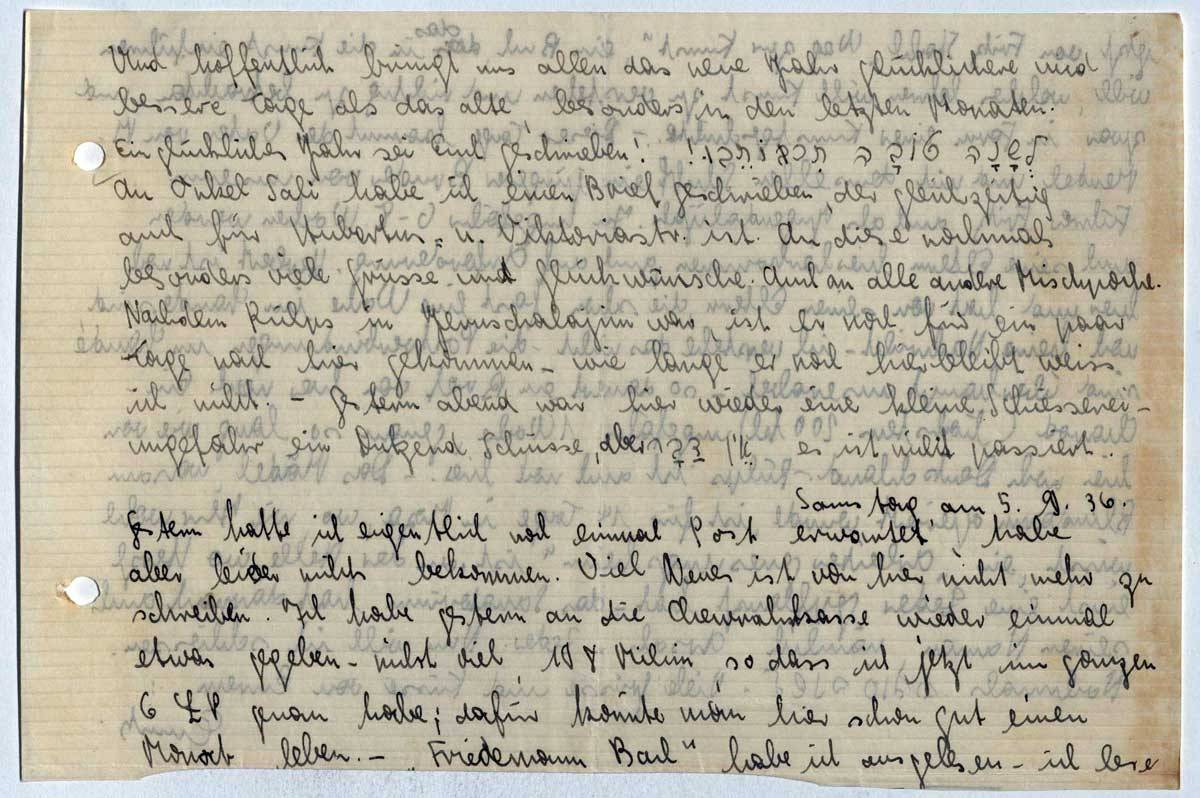 Und hoffentlich bringt uns allen das neue Jahr glücklichere und
bessere Tage als das alte, besonders in den letzten Monaten.
Ein glückliches Jahr sei Euch geschrieben! לְשָׁנָה טוֹבָה תִּכָּתֵבוּ!
An Onkel Sali habe ich einen Brief geschrieben, der gleichzeitig
auch für Hubertus- u. Viktoriastr. ist. An diese nochmals
besonders viele Grüsse und Glückwünsche. Auch an alle andere Mischpoche.
Nachdem Rülps in Jeruschalajim war ist er noch für ein paar
Tage nach hier gekommen - wie lange er noch hierbleibt weiss
ich nicht. - Gestern abend war hier wieder eine kleine Schiesserei -
ungefähr ein Dutzend Schüsse, aber אֵין דָּבָר es ist nichts passiert.
Samstag am 5. 9. 36.
Gestern hatte ich eigentlich noch einmal Post erwartet, habe
aber leider nichts bekommen. Viel Neues ist von hier nicht mehr zu
schreiben. Ich habe gestern an die Chewrahskasse wieder einmal
etwas gegeben - nicht viel 108 Milim so dass ich jetzt im ganzen
6 £P genau habe; dafür könnte man hier schon gut einen
Monat leben. - "Friedemann Bach" habe ich ausgelesen - ich lese